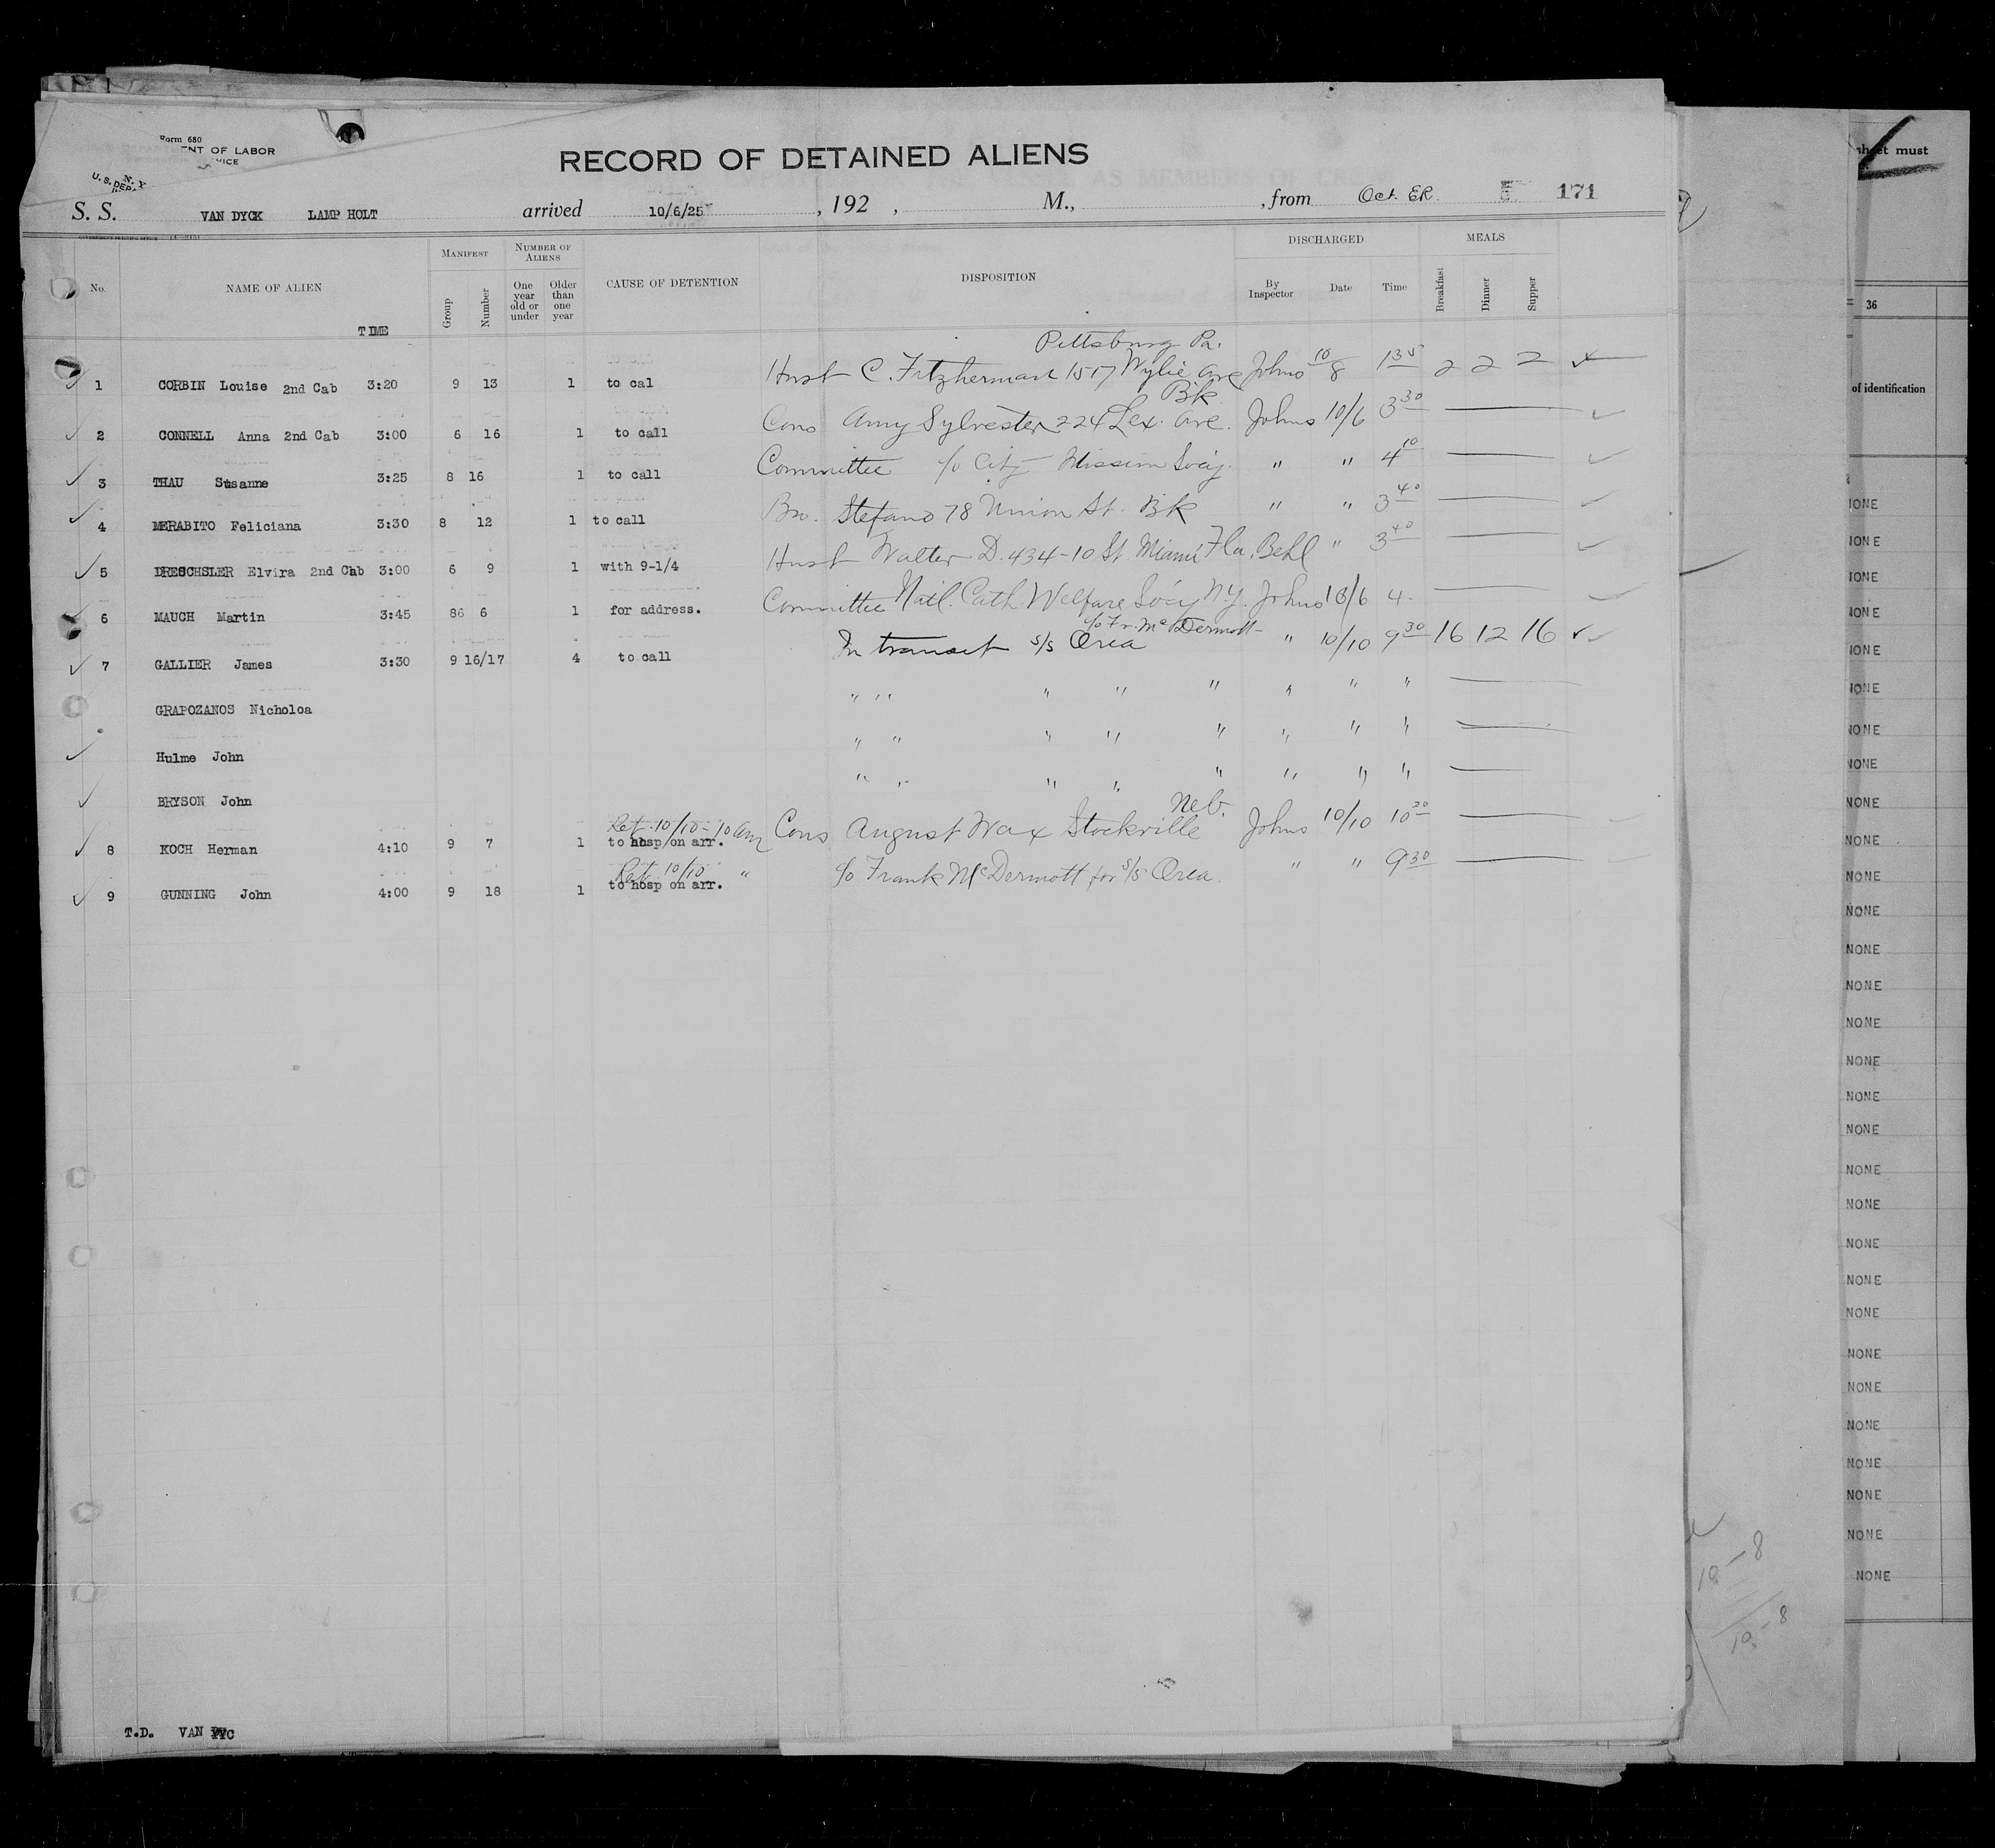 Form 680
NT OF LABOR
VICE
U. S. DEP
N. Y
RECORD OF DETAINED ALIENS
S. S. VAN DYCK LAMP HOLT arrived 10/6/25 , 192 , M., , from Oct. ER. 171
No. NAME OF ALIEN TIME MANIFEST Group Number NUMBER OF ALIENS One year old or under Older than one year CAUSE OF DETENTION DISPOSITION DISCHARGED By Inspector Date Time MEALS Breakfast Dinner Supper
Pittsburg Pa.
1 CORBIN Louise 2nd Cab 3:20 9 13 1 to cal Husb C. Fitzherman 1517 Wylie Ave Johns 10/8 1 35 2 2 2
Bk
2 CONNELL Anna 2nd Cab 3:00 6 16 1 to call Cons Amy Sylvester 224 Lex. Ave. Johns 10/6 3 30
3 THAU Susanne 3:25 8 16 1 to call Committee c/o City Mission Socy. " " 4 10
4 MERABITO Feliciana 3:30 8 12 1 to call Bro. Stefano 78 Union St. Bk " " 3 40
5 DRESCHSLER Elvira 2nd Cab 3:00 6 9 1 with 9-1/4 Husb Walter D. 434-10 St. Miami Fla. Behl " 3 40
6 MAUCH Martin 3:45 86 6 1 for address. Committee Natl. Cath. Welfare Socy N.Y. Johns 10/6 4.
c/o Fr. McDermott
7 GALLIER James 3:30 9 16/17 4 to call In transit s/s Orca " 10/10 9 30 16 12 16
GRAPOZANOS Nicholoa " " " " " " " "
Hulme John " " " " " " " "
BRYSON John " " " " " " " "
Ret. 10/10 - 10 am Neb.
8 KOCH Herman 4:10 9 7 1 to hosp on arr. Cons August Wax Stockville Johns 10/10 10 30
Ret 10/10 "
9 GUNNING John 4:00 9 18 1 to hosp on arr. c/o Frank McDermott for s/s Orca. " " 9 30
T.D. VAN
sheet must
36
of identification
NONE
NONE
NONE
NONE
NONE
NONE
NONE
NONE
NONE
NONE
NONE
NONE
NONE
NONE
NONE
NONE
NONE
NONE
NONE
NONE
NONE
NONE
NONE
NONE
NONE
NONE
NONE
NONE
NONE
NONE
10-8
10-8